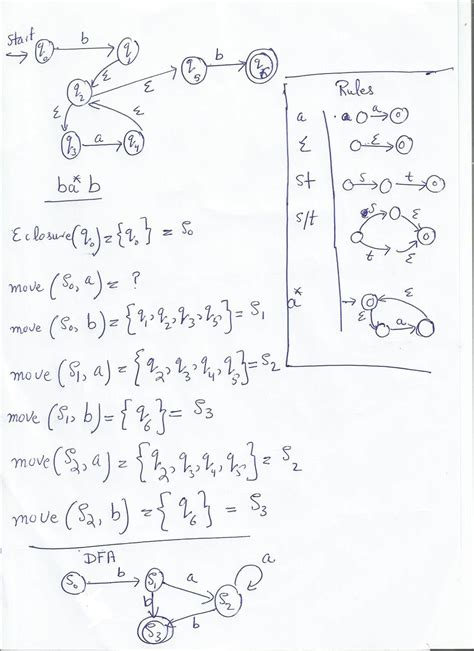 start q₀ b q₁
ε
q₂ ε q₅ b q₆
ε ε
q₃ a q₄
ba*b
Rules
a a
ε ε
st s t
s/t s ε
t ε
a* ε ε a
ε closure(q₀)={q₀} = S₀
move (S₀, a) = ?
move (S₀, b) = {q₁, q₂, q₃, q₅} = S₁
move (S₁, a) = {q₂, q₃, q₄, q₅} = S₂
move (S₁, b) = {q₆} = S₃
move (S₂, a) = {q₂, q₃, q₄, q₅} = S₂
move (S₂, b) = {q₆} = S₃
DFA
S₀ b S₁ a S₂ a
b b
S₃